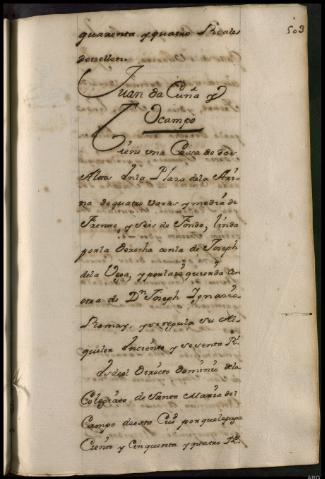 503
quarenta y quatro Reales
de vellon
Juan da Cuña y
Ocampo
Tiene una Casa de dos
Altos en la Plaza de la Hari
na de quatro varas y media de
Frente, y seis de Fondo, linda
por la derecha con la de Joseph
de la Vega, y por la izquierda con
otra de Dn Joseph Ignacio
y se regula su Al
quiler en ciento y sesenta Rs
es del Directo Dominio de la
Colegiata de Santa Maria del
Campo de esta Ciud por que le paga
Ciento y Cinquenta y quatro Rs